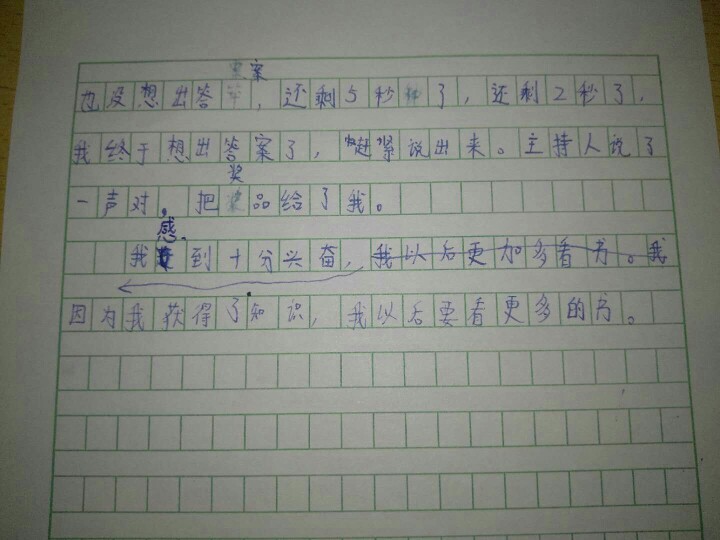 案
也没想出答，还剩5秒了，还剩2秒了，
我终于想出答案了，赶紧说出来。主持人说了
奖
一声对，把品给了我。
感
我到十分兴奋，我以后更加多看书。我
因为我获得了知识，我以后要看更多的书。